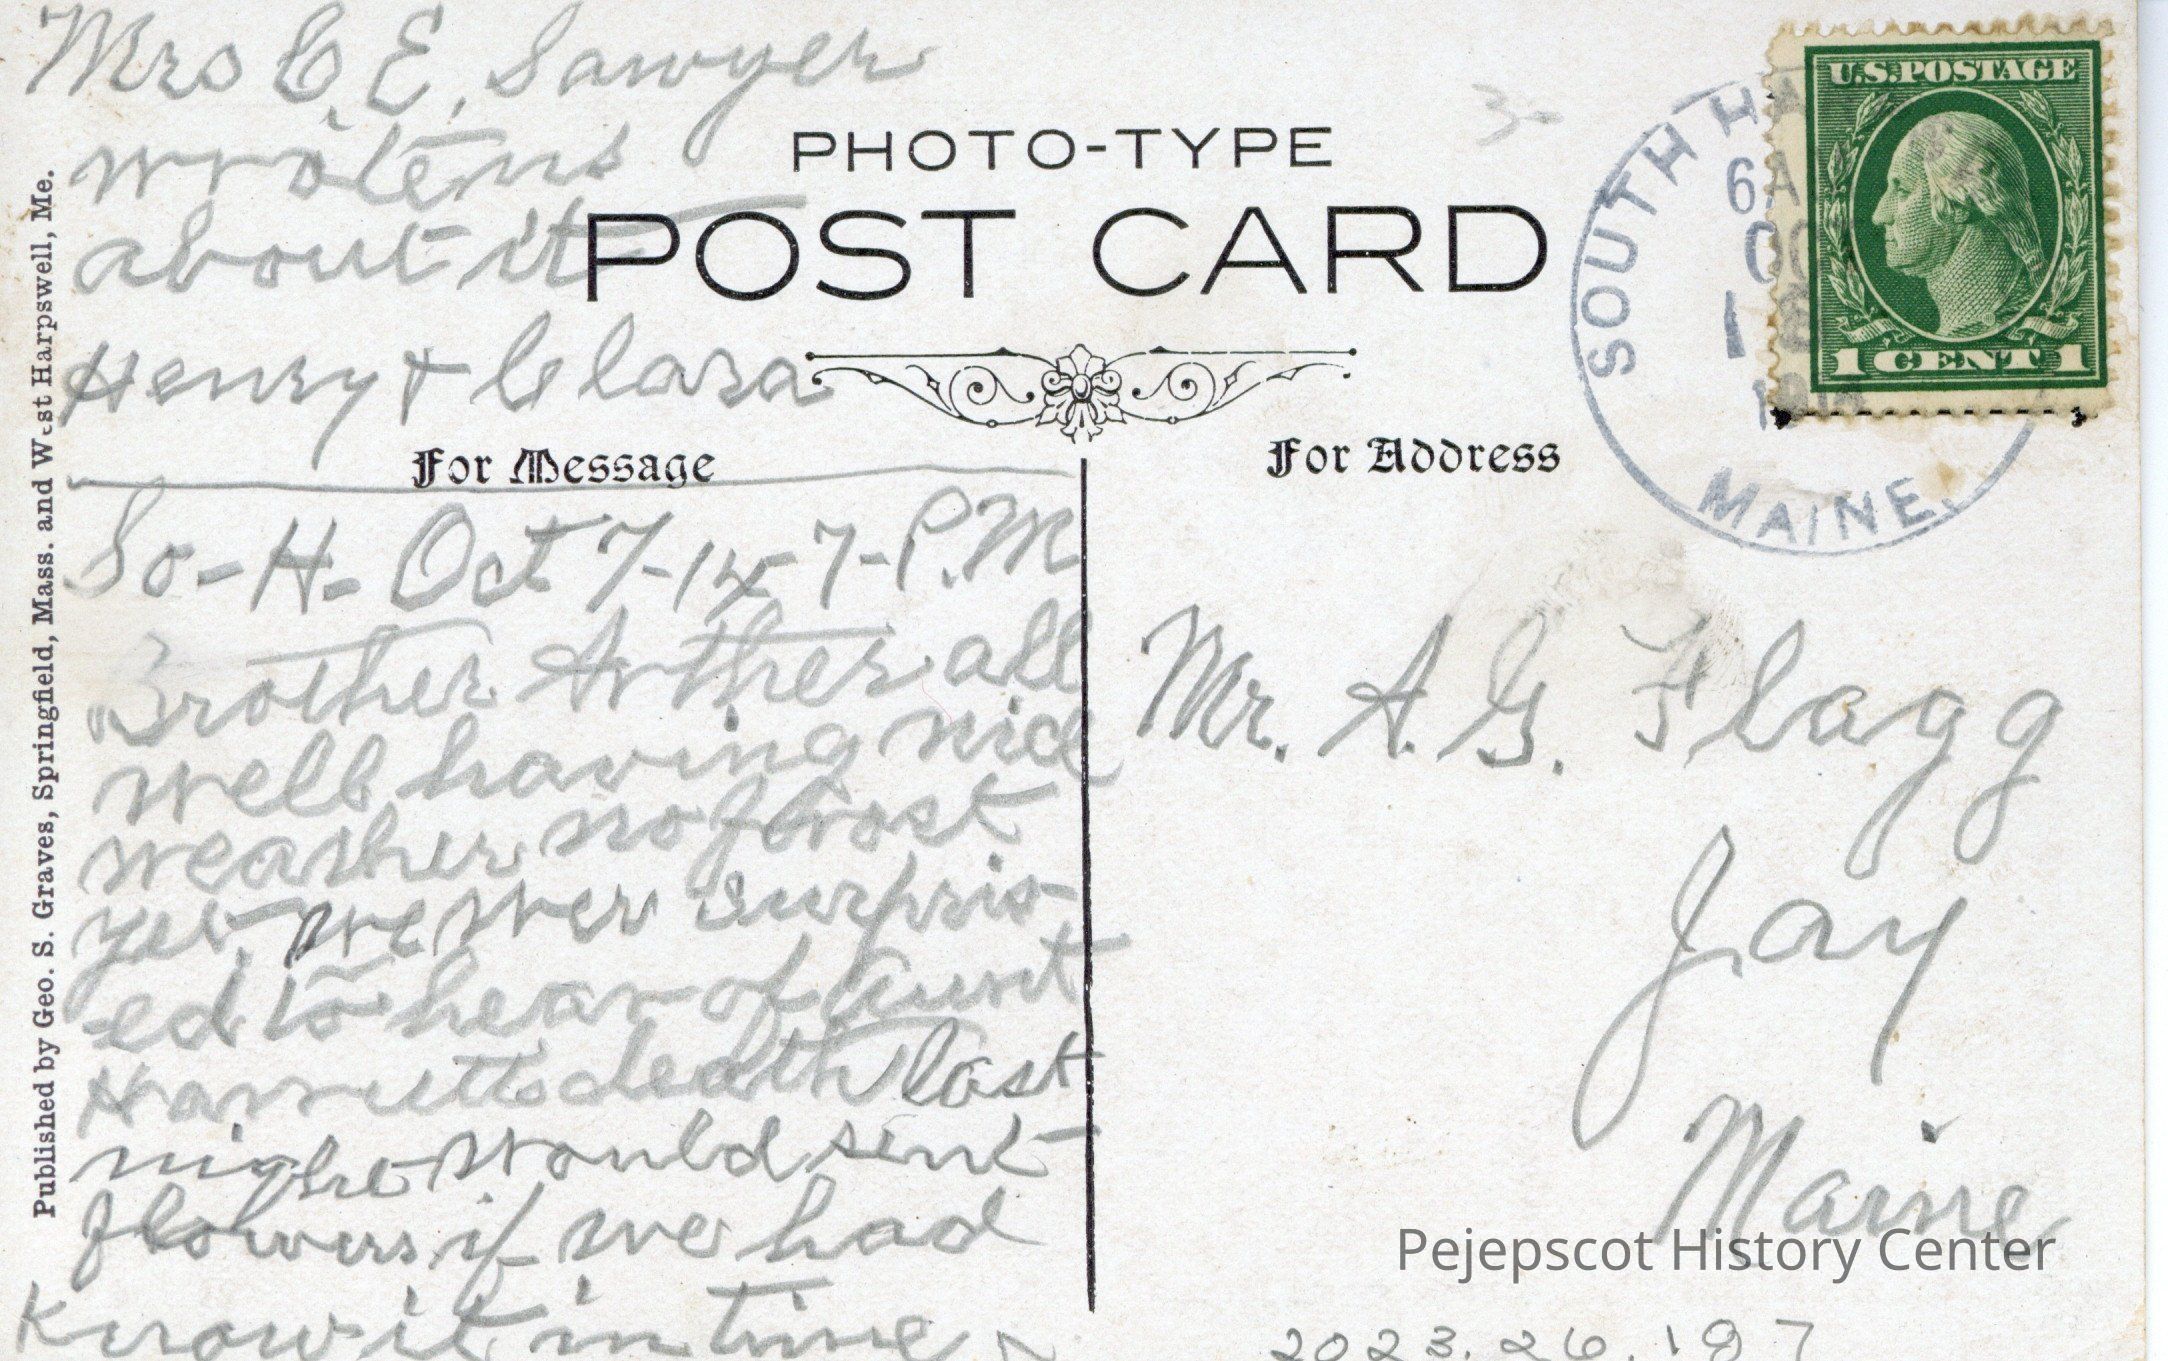 Mrs C. E. Sawyer
wrote us
about it
Henry & Clara
PHOTO-TYPE
POST CARD
For Message
For Address
So-H- Oct 7-14 7-P.M
Brother Arther all
well having nid
weather no frost
yet we wer surpris-
ed to hear of Aunt
Harrutts death last
night would sent
flowers if we had
know it in time
Published by Geo. S. Graves, Springfield, Mass. and West Harpswell, Me.
SOUTH HA
6A
OC
1914
MAINE.
U.S.POSTAGE
1 CENT 1
Mr. A. G. Flagg
Jay
Maine
Pejepscot History Center
2023.26.197